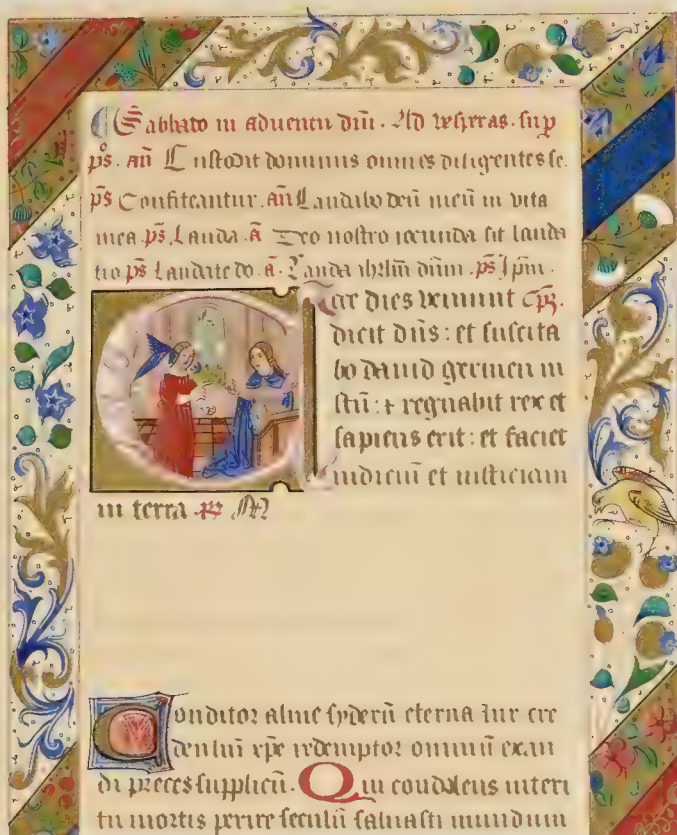 Sabbato in aduentu dñi. Ad vesperas. sup
ps. añ Custodit dominus omnes diligentes se.
p̄s Confiteantur. añ Laudabo deū meū in vita
mea p̄s Lauda. ā Deo nostro iocunda sit lauda
tio p̄s Laudate do. ā. Lauda ihrlm dūm. p̄s Ipm.
Ecce dies veniunt
dicit dñs: et suscita
bo dauid germen iu
stū: ⁊ regnabit rex et
sapiens erit: et faciet
iudiciū et iusticiam
in terra.
Conditor alme syderū eterna lux cre
dentiū xp̄e redemptor omniū exau
di preces supplicū. Qui condolens interi
tu mortis perire seculū saluasti mundum